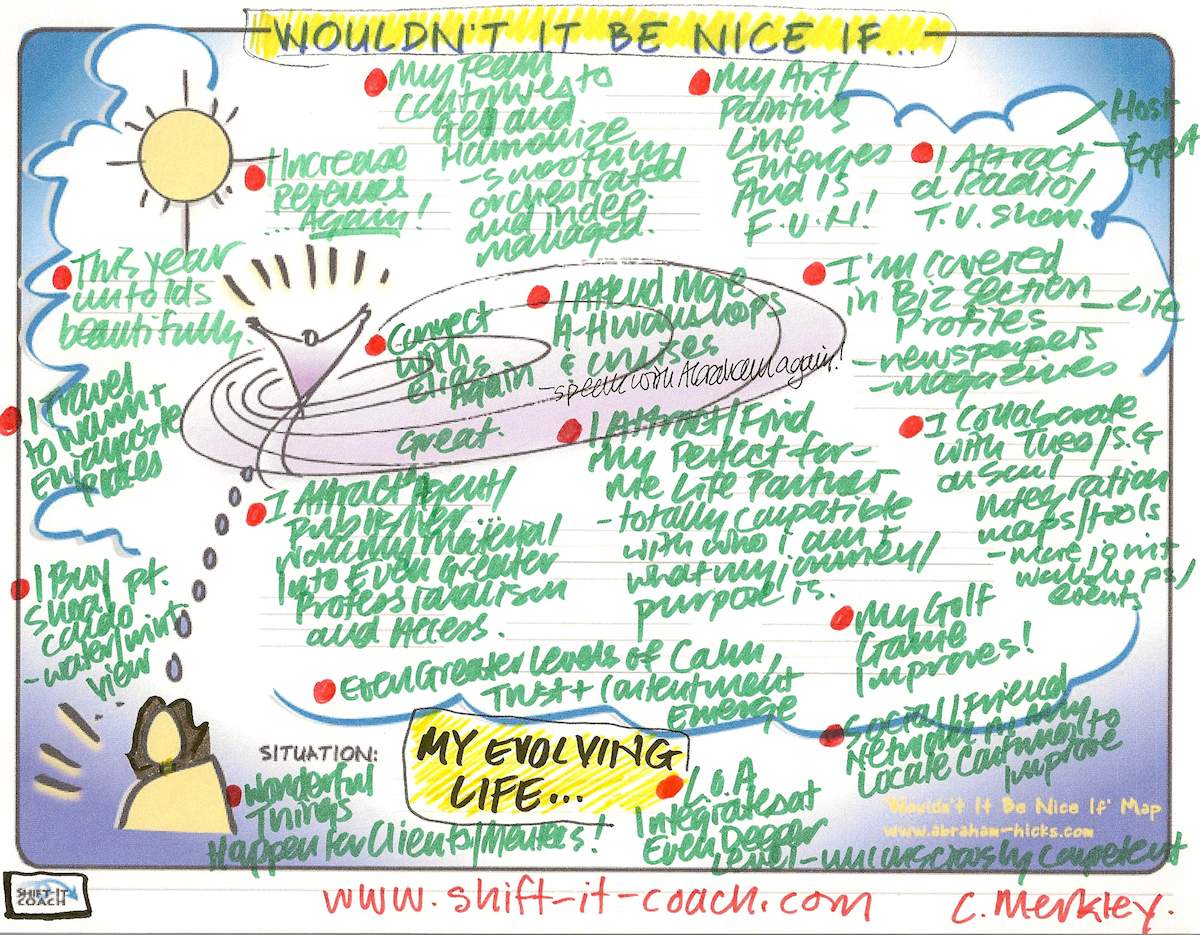 WOULDN'T IT BE NICE IF...
My Team
continues to
Gel and
Harmonize
- smoothly
orchestrated
and indep.
managed.
My Art/
Painting
Line
Emerges
And Is
F.U.N!
I Attract
a Radio/
T.V. Show.
- Host
- Expert
I Increase
Revenues
...Again!
This year
unfolds
beautifully.
Connect
with
Elias
Again
I Attend More
A-H Workshops
& cruises
- speak with Abraham again!
I'm covered
in Biz section
- Life
Profiles
- newspapers
- magazines
I Travel
to warm +
Enjoyable
Places
Great
I Attract Agent/
Publisher
Molding my Material
Into Even Greater
Professionalism
and Access.
I Attract/Find
My Perfect-for-
me Life Partner
- totally compatible
with who i am +
what my journey/
purpose is.
I Collaborate
with Theo/S.G
on Soul
Integration
maps/tools
- more joint
workshops/
events
I Buy
Shea pt.
condo
- water/mnt.
view
My Golf
Game
Improves!
Even Greater Levels of Calm,
Trust + Contentment
Emerge
Social/Friend
Network in my
Locale Continues to
Improve
SITUATION:
MY EVOLVING
LIFE...
Wonderful
Things
Happen for Clients/Mentees!
L.o.A
Integrates at
Even Deeper
Level - unconsciously competent
'Wouldn't It Be Nice If' Map
www.abraham-hicks.com
SHIFT-IT
COACH
www.shift-it-coach.com
C. Merkley.